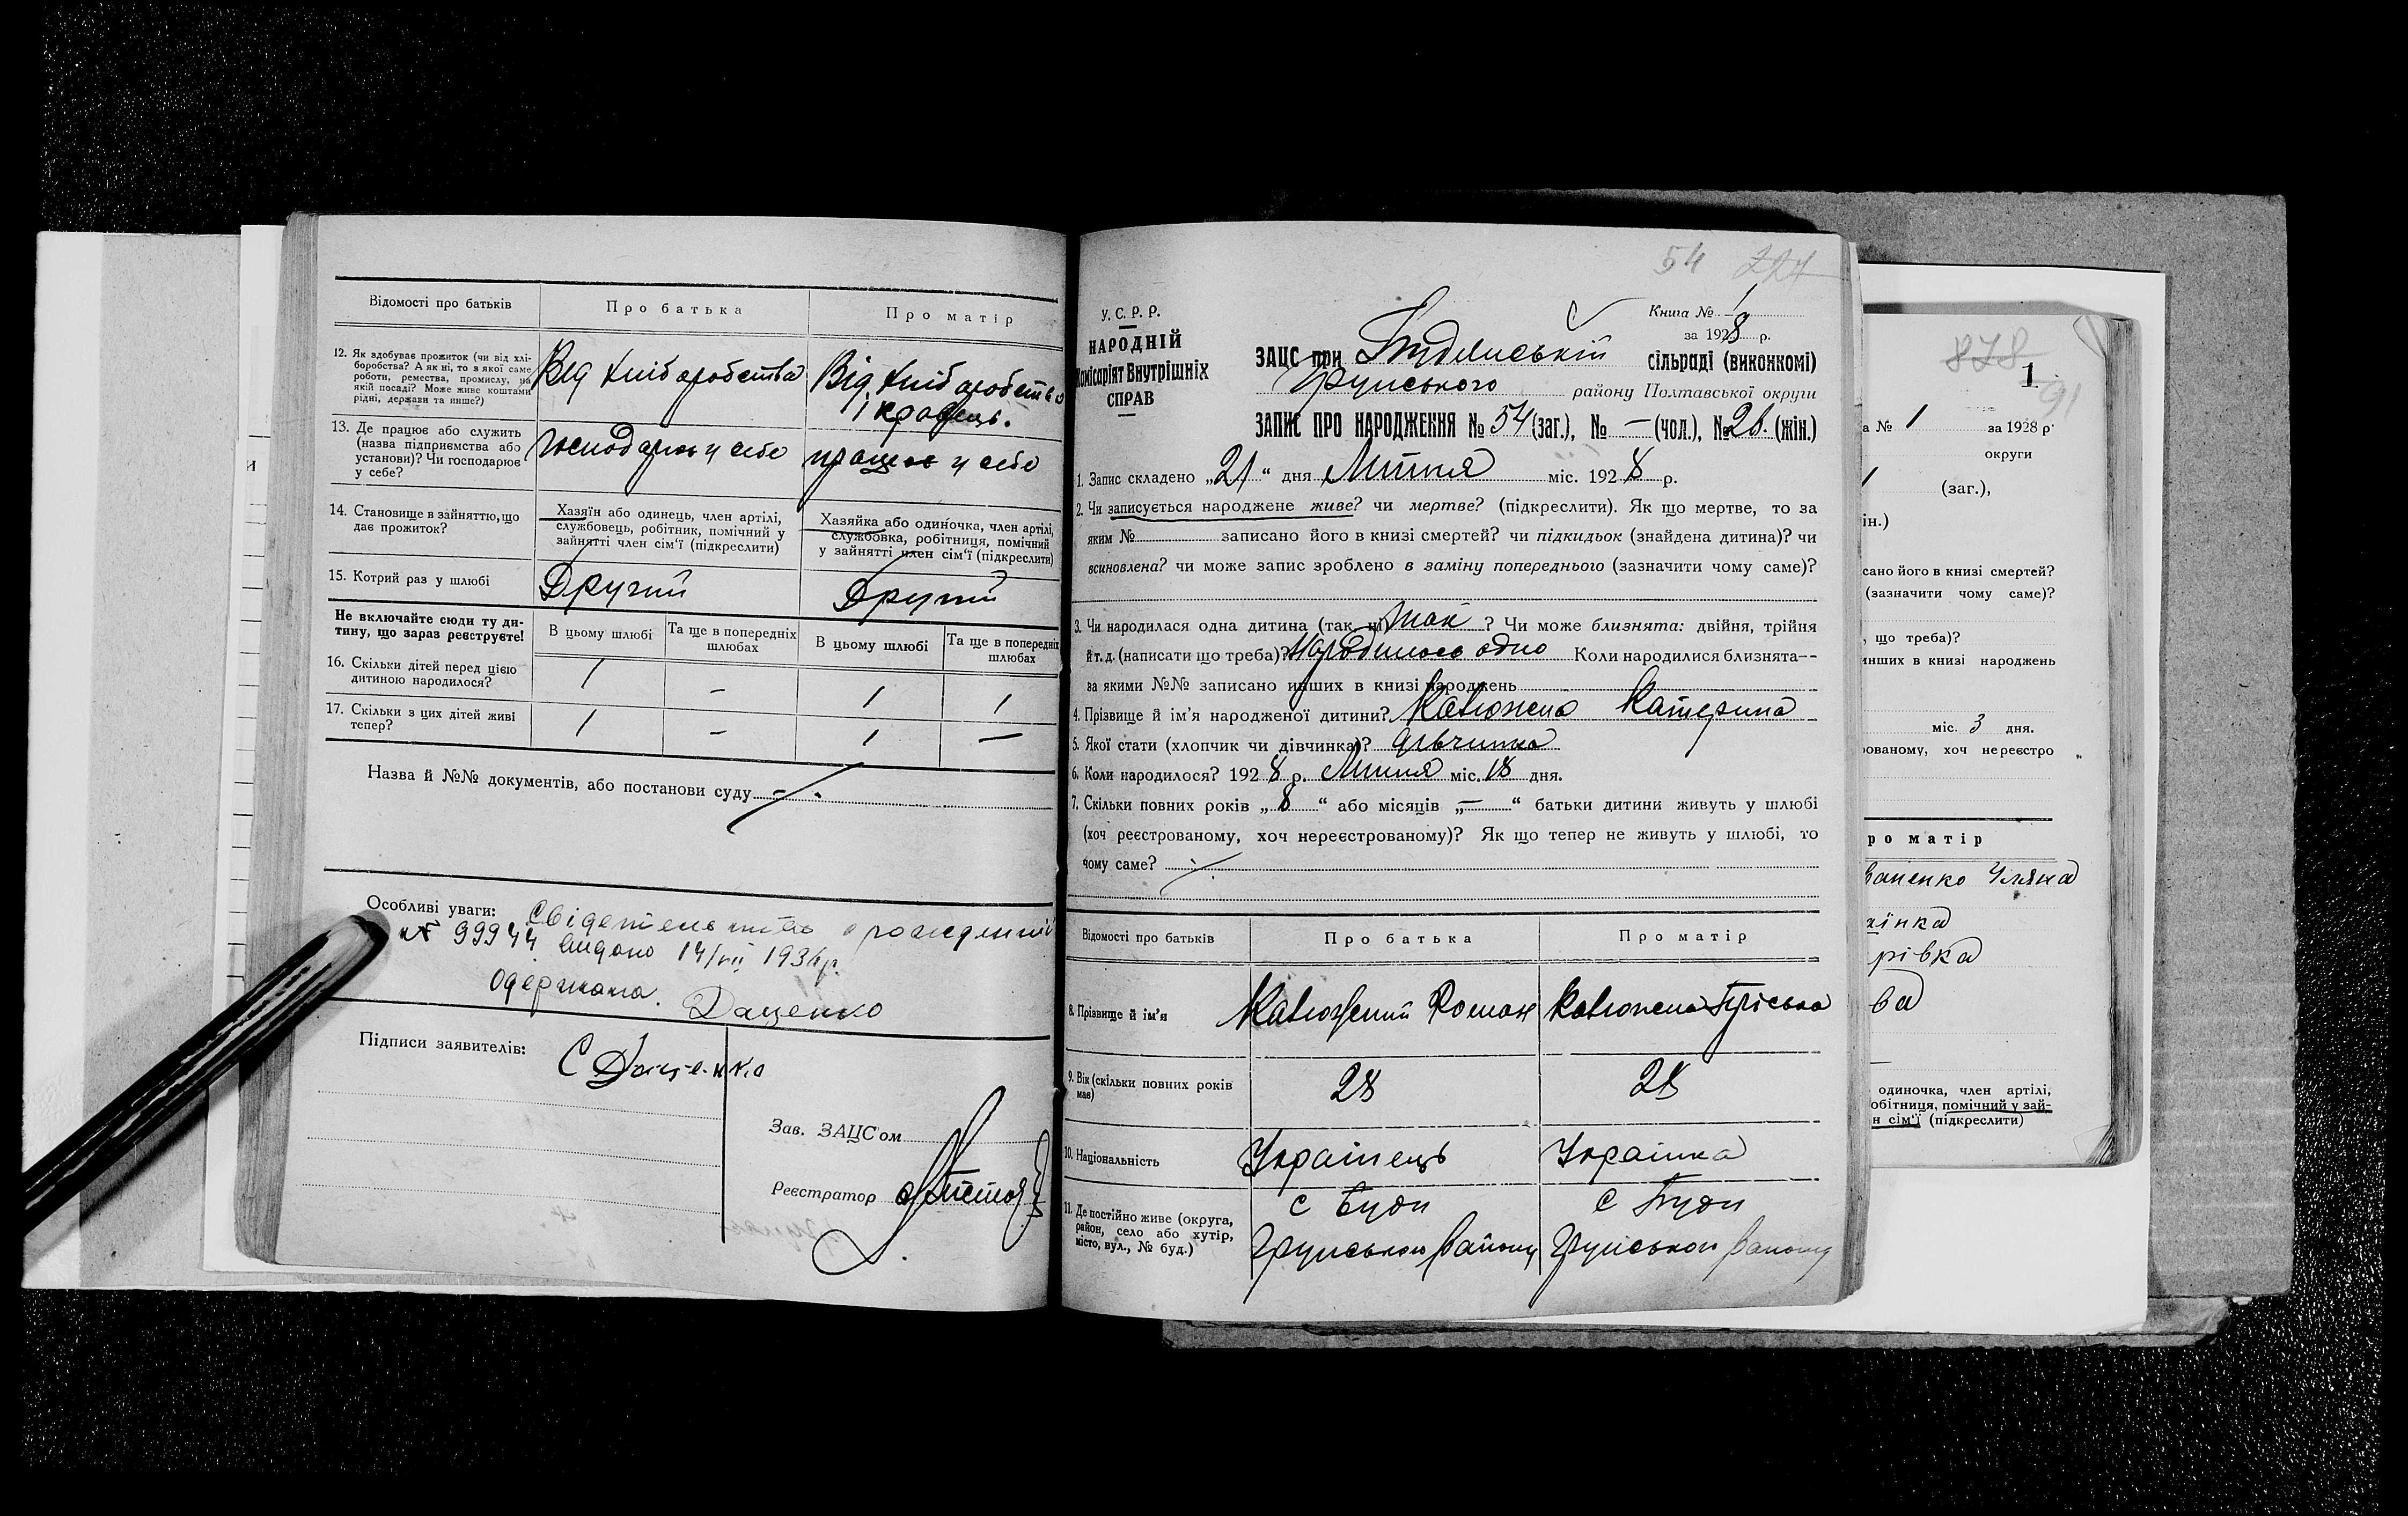 Відомості про батьків
Про батька
Про матір
12. Як здобуває прожиток (чи від хлі-
боробства? А як ні, то з якої саме
роботи, ремества, промислу, на
якій посаді? Може живе коштами
рідні, держави та инше?)
Від хліборобства
Від хліборобства
і кравець.
13. Де працює або служить
(назва підприємства або
установи)? Чи господарює
у себе?
господарює у себе
працює у себе
14. Становище в зайняттю, що
дає прожиток?
Хазяїн або одинець, член артілі,
службовець, робітник, помічний у
зайнятті член сім'ї (підкреслити)
Хазяйка або одиночка, член артілі,
службовка, робітниця, помічний
у зайнятті член сім'ї (підкреслити)
15. Котрий раз у шлюбі
Другий
Другий
Не включайте сюди ту ди-
тину, що зараз реєструєте!
В цьому шлюбі
Та ще в попередніх
шлюбах
В цьому шлюбі
Та ще в попередніх
шлюбах
16. Скільки дітей перед цією
дитиною народилося?
1
-
1
1
17. Скільки з цих дітей живі
тепер?
1
-
1
—
Назва й №№ документів, або постанови суду
Особливі уваги:
№ 99944 видано 14/VII 1934р.
Одержала. Даценко
Підписи заявителів:
С Даценко
Зав. ЗАЦС'ом
Реєстратор
54 224
У. С. Р. Р.
НАРОДНІЙ
Комісаріят Внутрішніх
СПРАВ
Книга № 1
за 1928 р.
ЗАЦС при сільраді (виконкомі)
Грунського району Полтавської округи
ЗАПИС ПРО НАРОДЖЕННЯ № 54 (заг.), № — (чол.), № 28. (жін.)
1. Запис складено „21" дня Липня міс. 1928 р.
2. Чи записується народжене живе? чи мертве? (підкреслити). Як що мертве, то за
яким № записано його в книзі смертей? чи підкидьок (знайдена дитина)? чи
всиновлена? чи може запис зроблено в заміну попереднього (зазначити чому саме)?
3. Чи народилася одна дитина (так, ні) так ? Чи може близнята: двійня, трійня
й т. д. (написати що треба)? Народилось одно Коли народилися близнята--
за якими №№ записано инших в книзі народжень
4. Прізвище й ім'я народженої дитини? Катерина
5. Якої стати (хлопчик чи дівчинка)? дівчинка
6. Коли народилося? 1928 р. Липня міс. 18 дня.
7. Скільки повних років „8" або місяців „—" батьки дитини живуть у шлюбі
(хоч реєстрованому, хоч нереєстрованому)? Як що тепер не живуть у шлюбі, то
чому саме?
Відомості про батьків
Про батька
Про матір
8. Прізвище й ім'я
Роман
Пріська
9. Вік (скільки повних років
має)
28
28
10. Національність
Українець
Українка
11. Де постійно живе (округа,
район, село або хутір,
місто, вул., № буд.)
с Буди
Грунського району
с Буди
Грунського району
878
1
91
а № 1 за 1928 р.
округи
1 (заг.),
ін.)
сано його в книзі смертей?
(зазначити чому саме)?
, що треба)?
инших в книзі народжень
міс. 3 дня.
рованому, хоч нереєстро
ро матір
ваненко Уляна
їнка
рівка
ва
одиночка, член артілі,
обітниця, помічний у зай-
н сім'ї (підкреслити)